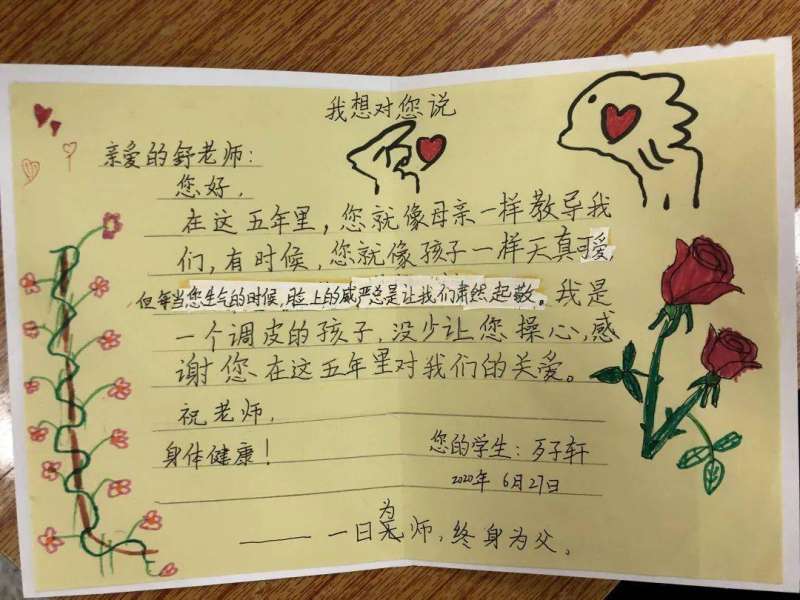 我想对您说
亲爱的舒老师:
您好,
在这五年里,您就像母亲一样教导我
们,有时候,您就像孩子一样天真可爱,
但每当您生气的时候,脸上的威严总是让我们肃然起敬。我是
一个调皮的孩子,没少让您操心,感
谢您在这五年里对我们的关爱。
祝老师,
身体健康!
您的学生:歹子轩
2020年6月27日
—— 一日为师,终身为父。